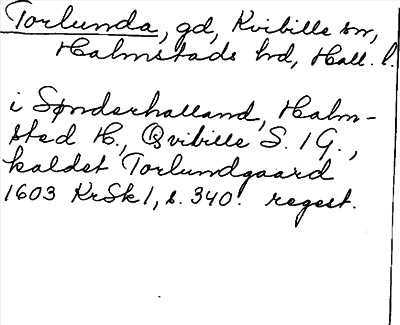 Torlunda, gd, Kvibille sn,
Halmstads hd, Hall. l.
i Sønderhalland, Halm-
sted H., Qvibille S. 1 G.,
kaldet Torlundgaard
1603 KrSk 1, s. 340. regest.